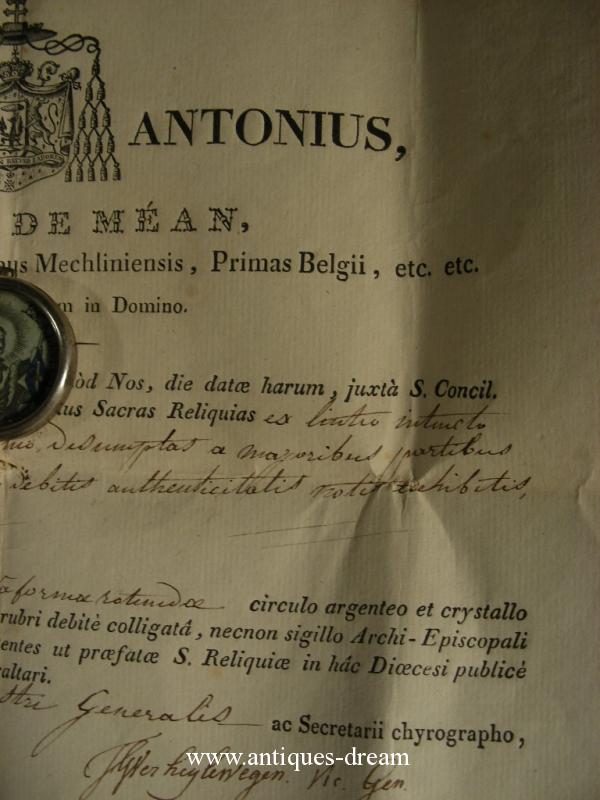 ANTONIUS,
DE MÉAN,
us Mechliniensis, Primas Belgii, etc. etc.
m in Domino.
òd Nos, die datæ harum, juxtà S. Concil.
us Sacras Reliquias ex linteo intincto
desumptas a majoribus partibus
debitis authenticitatis notis exhibitis,
formæ rotundæ circulo argenteo et crystallo
rubri debitè colligatâ, necnon sigillo Archi-Episcopali
entes ut præfatæ S. Reliquiæ in hâc Diœcesi publicè
altari.
stri Generalis ac Secretarii chyrographo,
Vic. Gen.
www.antiques-dream